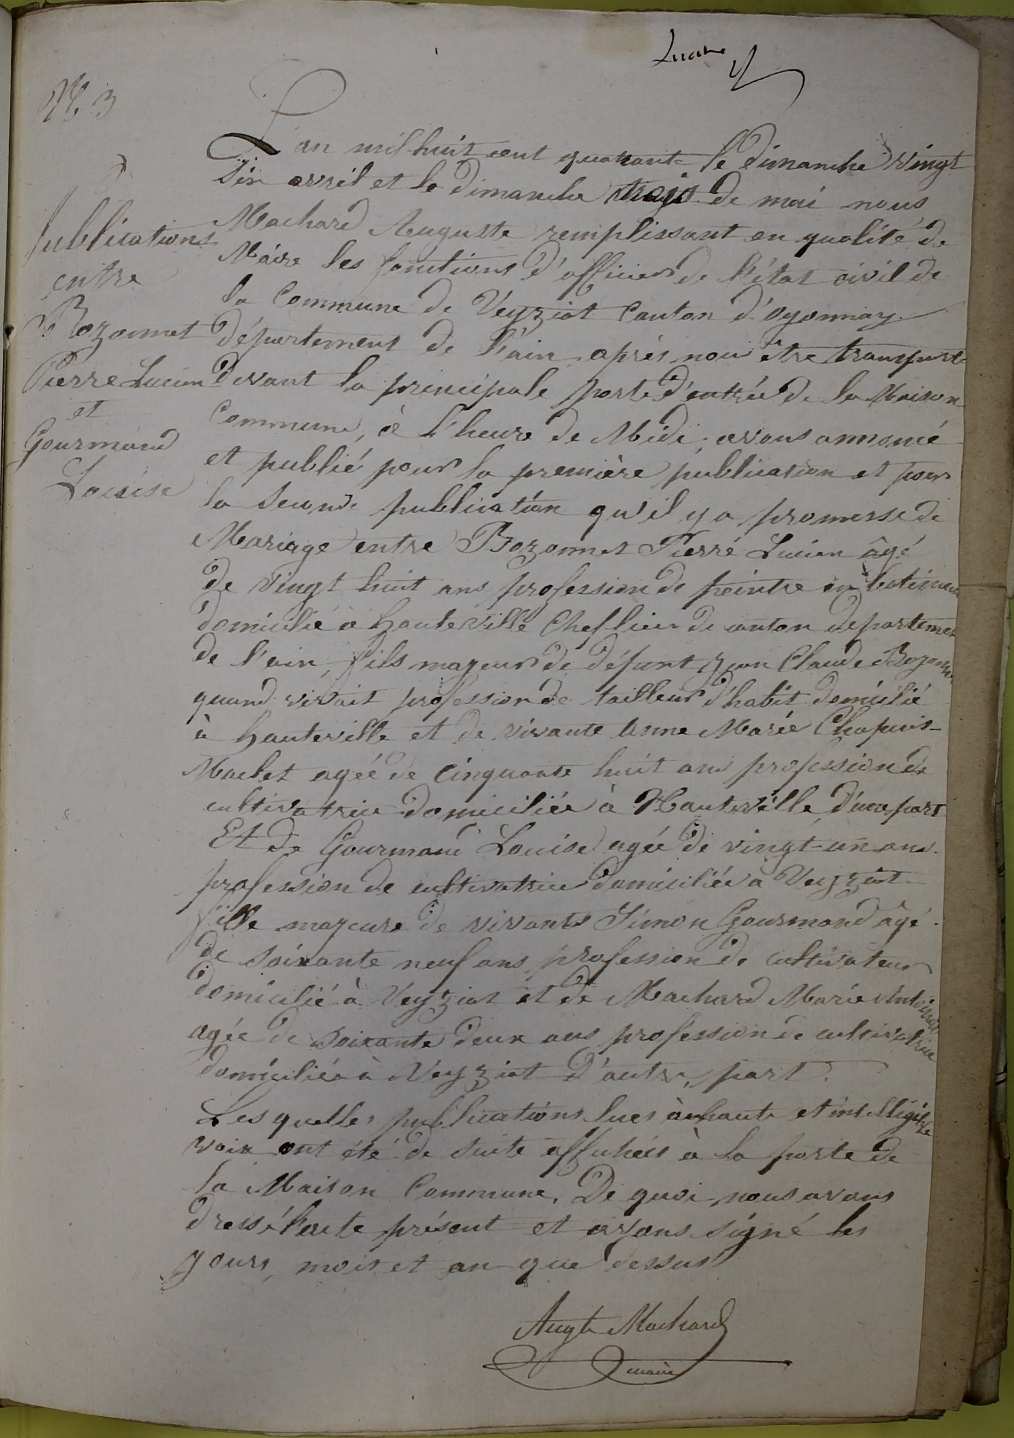 N° 3
Publications
entre
Bozonnet
Pierre Lucien
et
Gourmand
Louise
L'an mil huit cent quarante le dimanche vingt
six avril et le dimanche trois de mai nous
Machard Auguste remplissant en qualité de
Maire les fonctions d'officier de l'état civil de
la Commune de Veyziat Canton d'oyonnax
département de l'ain après nous être transporté
devant la principale porte d'entrée de la Maison
Commune, à l'heure de Midi, avons annoncé
et publié pour la première publication et pour
la Seconde publication qu'il y a promesse de
Mariage entre Bozonnet Pierre Lucien âgé
de vingt huit ans profession de peintre en batiment
domicilié à Hauteville Chef lieu de canton departement
de l'ain, fils majeur de défunt Jean Claude Bozonnet
quand vivait profession de tailleur d'habit domicilié
à Hauteville et de vivante Anne Marie Chapuis-
Maclet agée de Cinquante huit ans profession de
cultivatrice domiciliée à Hauteville, d'une part
Et de Gourmand Louise agée de vingt-un ans
profession de cultivatrice domiciliée à Veyziat
fille majeure de vivants Simon Gourmand âgé
de soixante neuf ans profession de cultivateur
domicilié à Veyziat et de Machard Marie Antoinette
agée de soixante deux ans profession de cultivatrice
domiciliée à Veyziat D'autre part.
Lesquelles publications lues à haute et intelligible
voix ont été de suite affichées à la porte de
la Maison Commune. De quoi nous avons
dressé l'acte présent et avons signé les
jours, mois et an que dessus
Augte Machard
maire